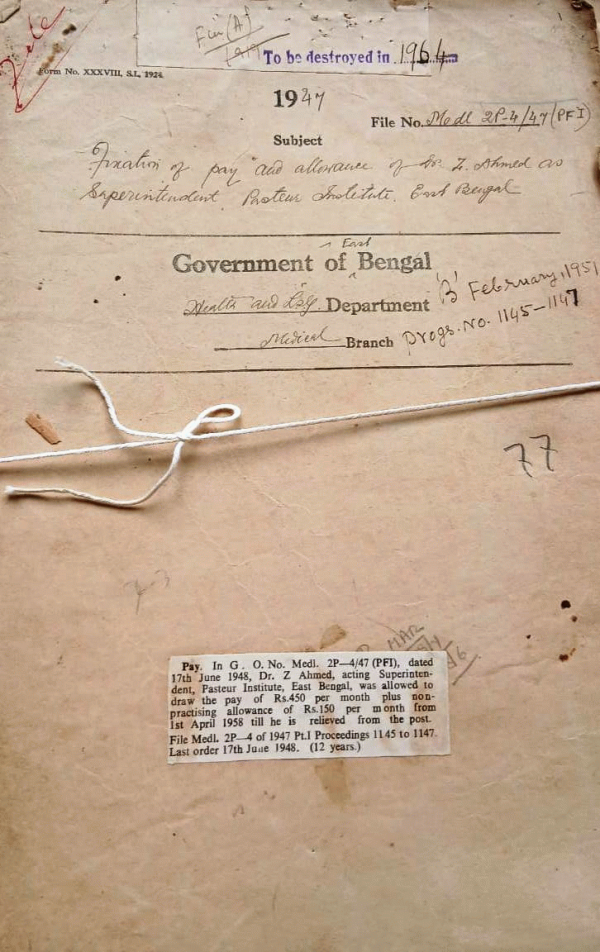 File
Fin(A)
To be destroyed in 1964
Form No. XXXVIII, S.L, 1924.
1947
File No. Medl 2P-4/47 (PFI)
Subject
Fixation of pay and allowance of Dr. Z. Ahmed as
Superintendent, Pasteur Institute, East Bengal
East
Government of ^ Bengal
Health and LSG. Department
'B' February, 1951
Medical Branch
Progs. No. 1145-1147
77
MAR
Pay. In G. O. No. Medl. 2P—4/47 (PFI), dated
17th June 1948, Dr. Z Ahmed, acting Superinten-
dent, Pasteur Institute, East Bengal, was allowed to
draw the pay of Rs.450 per month plus non-
practising allowance of Rs.150 per month from
1st April 1958 till he is relieved from the post.
File Medl. 2P—4 of 1947 Pt.I Proceedings 1145 to 1147.
Last order 17th June 1948. (12 years.)